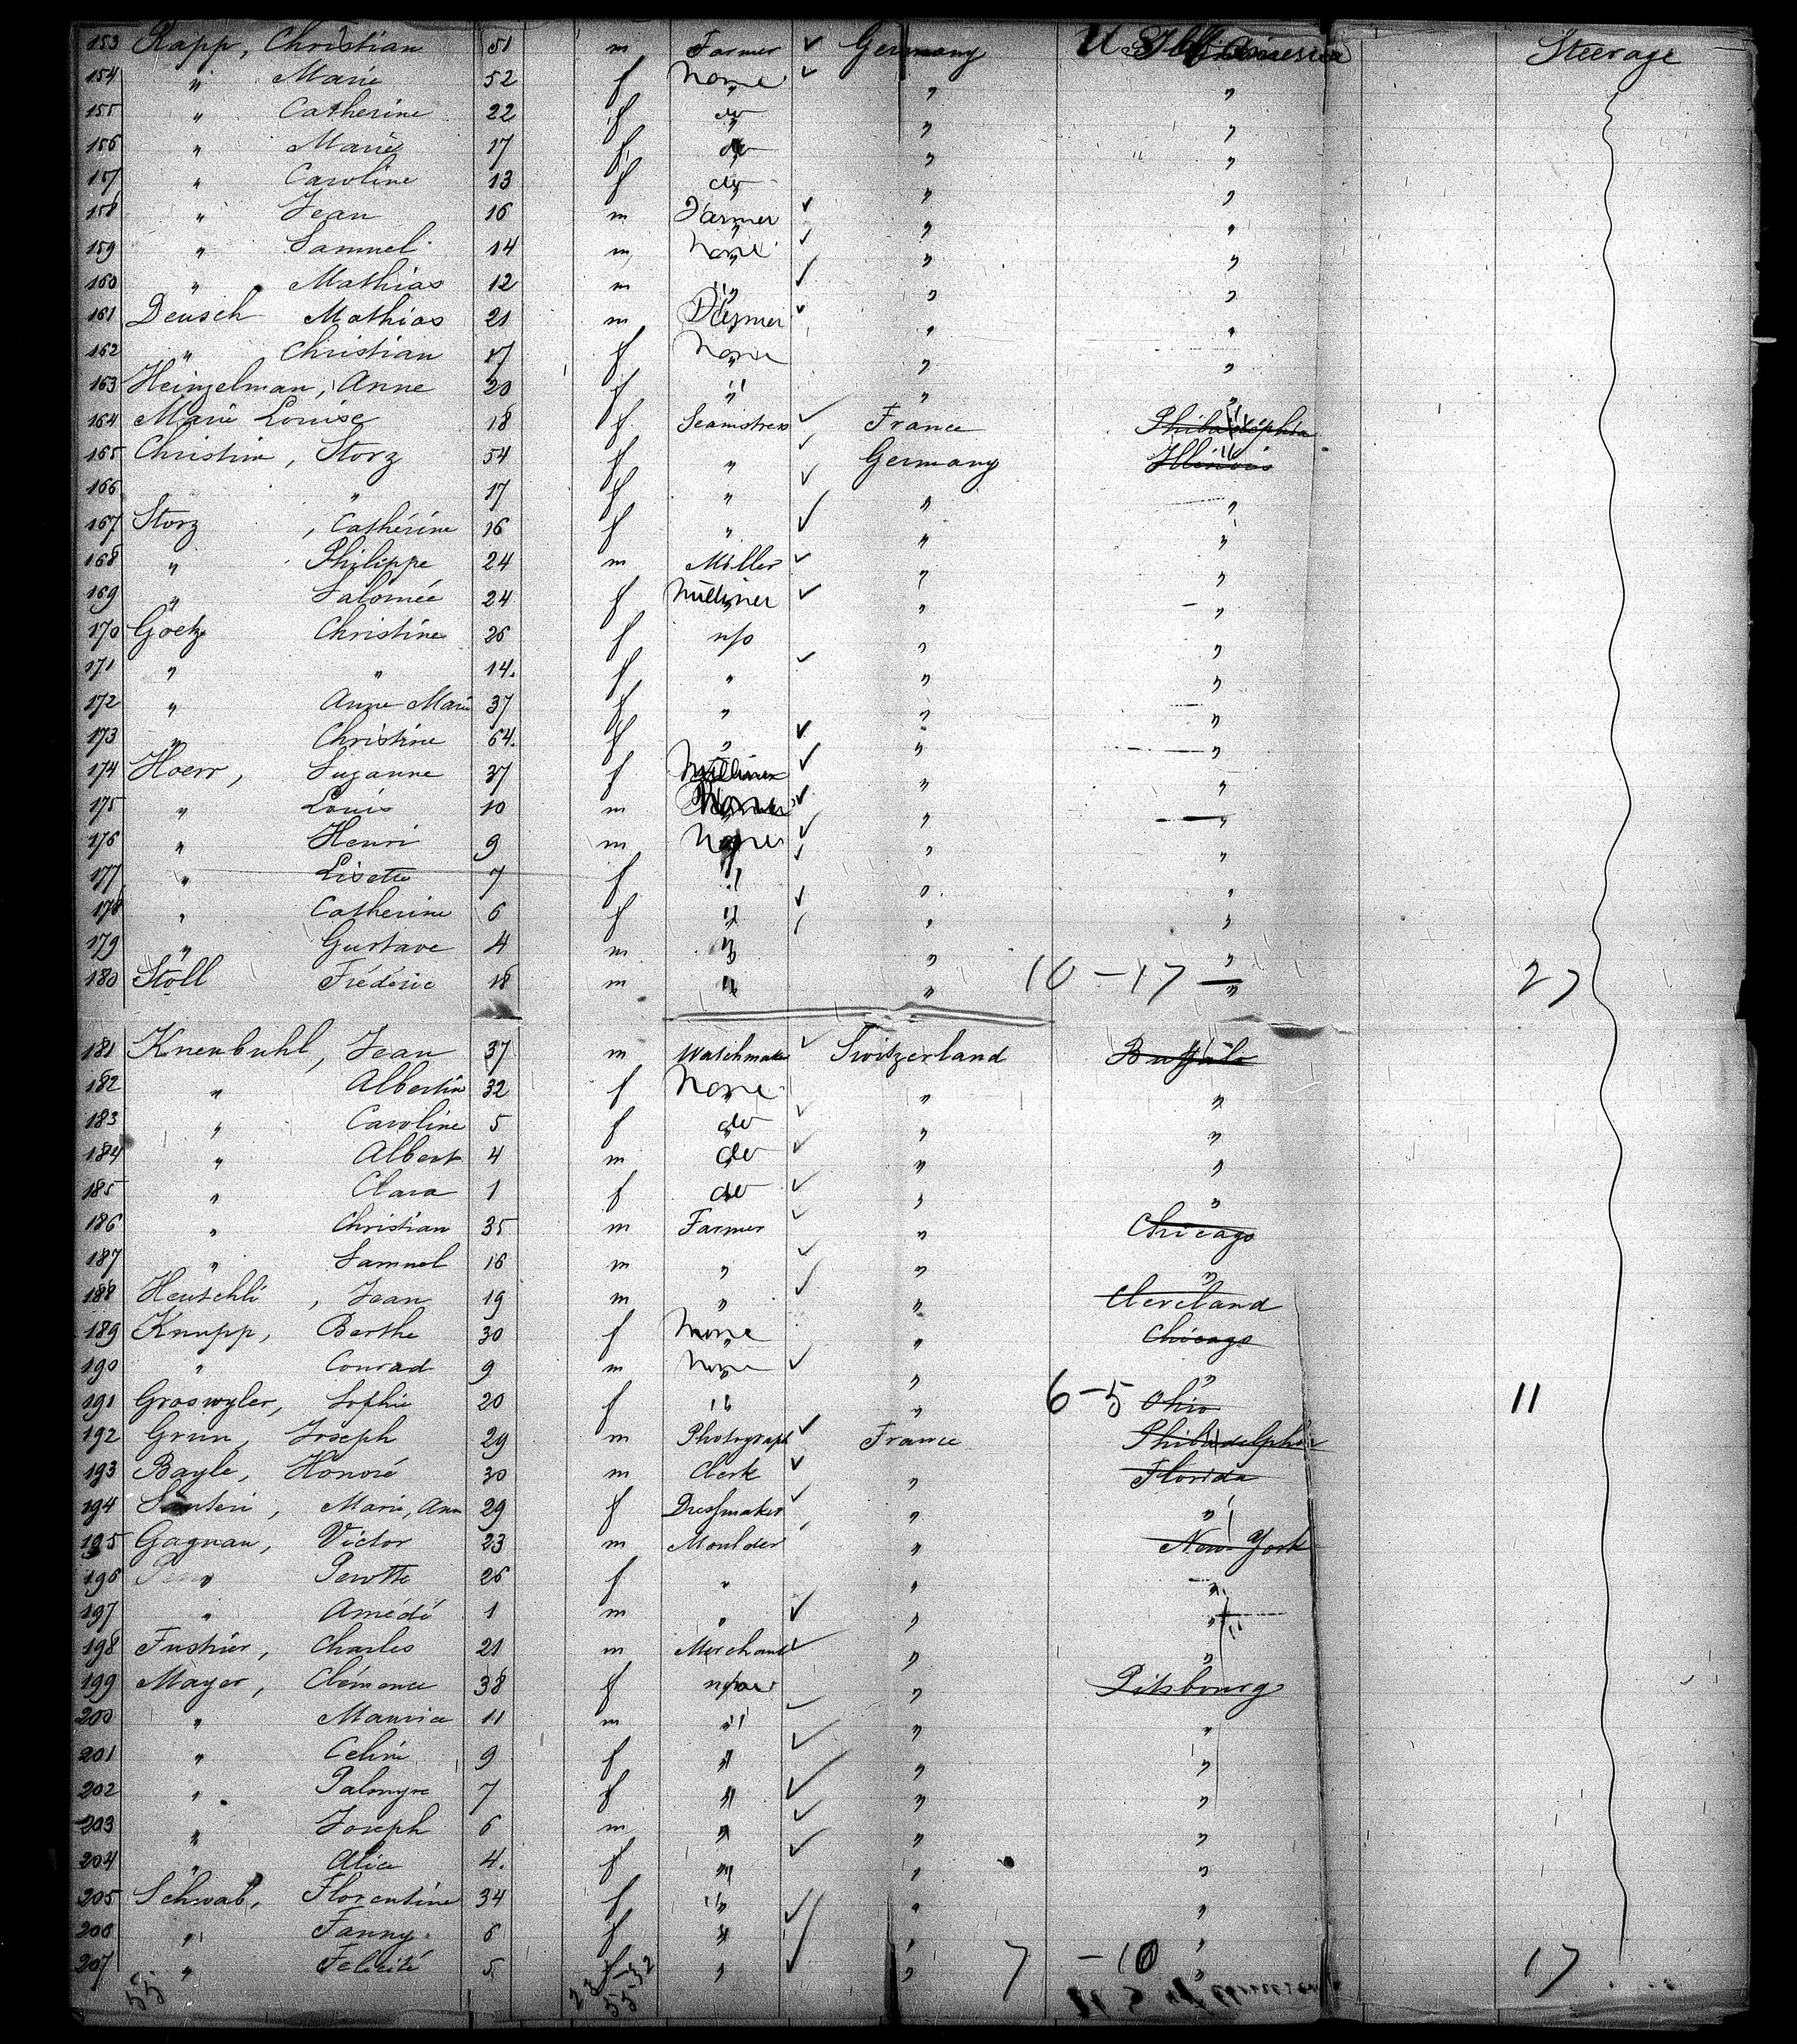 153 Rapp, Christian 51 m Farmer ✓ Germany U S of America Steerage
154 " Marie 52 f None ✓ " "
155 " Catherine 22 f do " "
156 " Marie 17 f do " "
157 " Caroline 13 f do " "
158 " Jean 16 m Farmer ✓ " "
159 " Samuel 14 m None ✓ " "
160 " Mathias 12 m " ✓ " "
161 Deusch Mathias 21 m Farmer ✓ " "
162 " Christian 17 f None " "
163 Heinzelman, Anne 20 f " " "
164 Marie Louise 18 f Seamstress ✓ France Philadelphia
165 Christine, Storz 54 f " ✓ Germany Illinois
166 " 17 f " ✓ " "
167 Storz, Cathérine 16 f " ✓ " "
168 " Philippe 24 m Miller ✓ " "
169 " Salomée 24 f Milliner ✓ " "
170 Goetz Christine 26 f n/o " "
171 " " 14. f " ✓ " "
172 " Anne Marie 37 f " " "
173 " Christine 64. f " ✓ " "
174 Hoerr, Suzanne 37 f Milliner ✓ " "
175 " Louis 10 m ✓ " "
176 " Henri 9 m None ✓ " "
177 " Lisette 7 f " ✓ " "
178 " Catherine 6 f " ✓ " "
179 " Gustave 4 m " " "
180 Stoll Fréderic 18 m " " 10-17 " 27
181 Knenbuhl, Jean 37 m Watchmaker ✓ Switzerland Buffalo
182 " Albertin 32 f None " "
183 " Caroline 5 f do ✓ " "
184 " Albert 4 m do ✓ " "
185 " Clara 1 f do ✓ " "
186 " Christian 35 m Farmer ✓ " Chicago
187 " Samuel 16 m " ✓ " "
188 Heutschli, Jean 19 m " ✓ " Cleveland
189 Knupp, Berthe 30 f None " Chicago
190 " Conrad 9 m None ✓ " "
191 Groswyler, Sophie 20 f " " 6-5 Ohio 11
192 Grun, Joseph 29 m Photograph ✓ France Philadelphia
193 Bayle, Honoré 30 m Clerk ✓ " Florida
194 Santeri, Marie, Ann 29 f Dressmaker ✓ " "
195 Gagnan, Victor 23 m Moulder " New-York
196 " Perotte 26 f " " "
197 " Amédé 1 m " ✓ " "
198 Fustier, Charles 21 m Merchant ✓ " "
199 Mayer, Clémence 38 f " Pitsbourg
200 " Maurice 11 m " ✓ " "
201 " Celine 9 f " ✓ " "
202 " Palmyre 7 f " ✓ " "
203 " Joseph 6 m " ✓ " "
204 " Alice 4. f " ✓ " "
205 Schwab, Florentine 34 f " ✓ " "
206 " Fanny 6 f " ✓ " "
207 " Felicité 5 f " ✓ " 7 -10 " 17
55 23-32
55